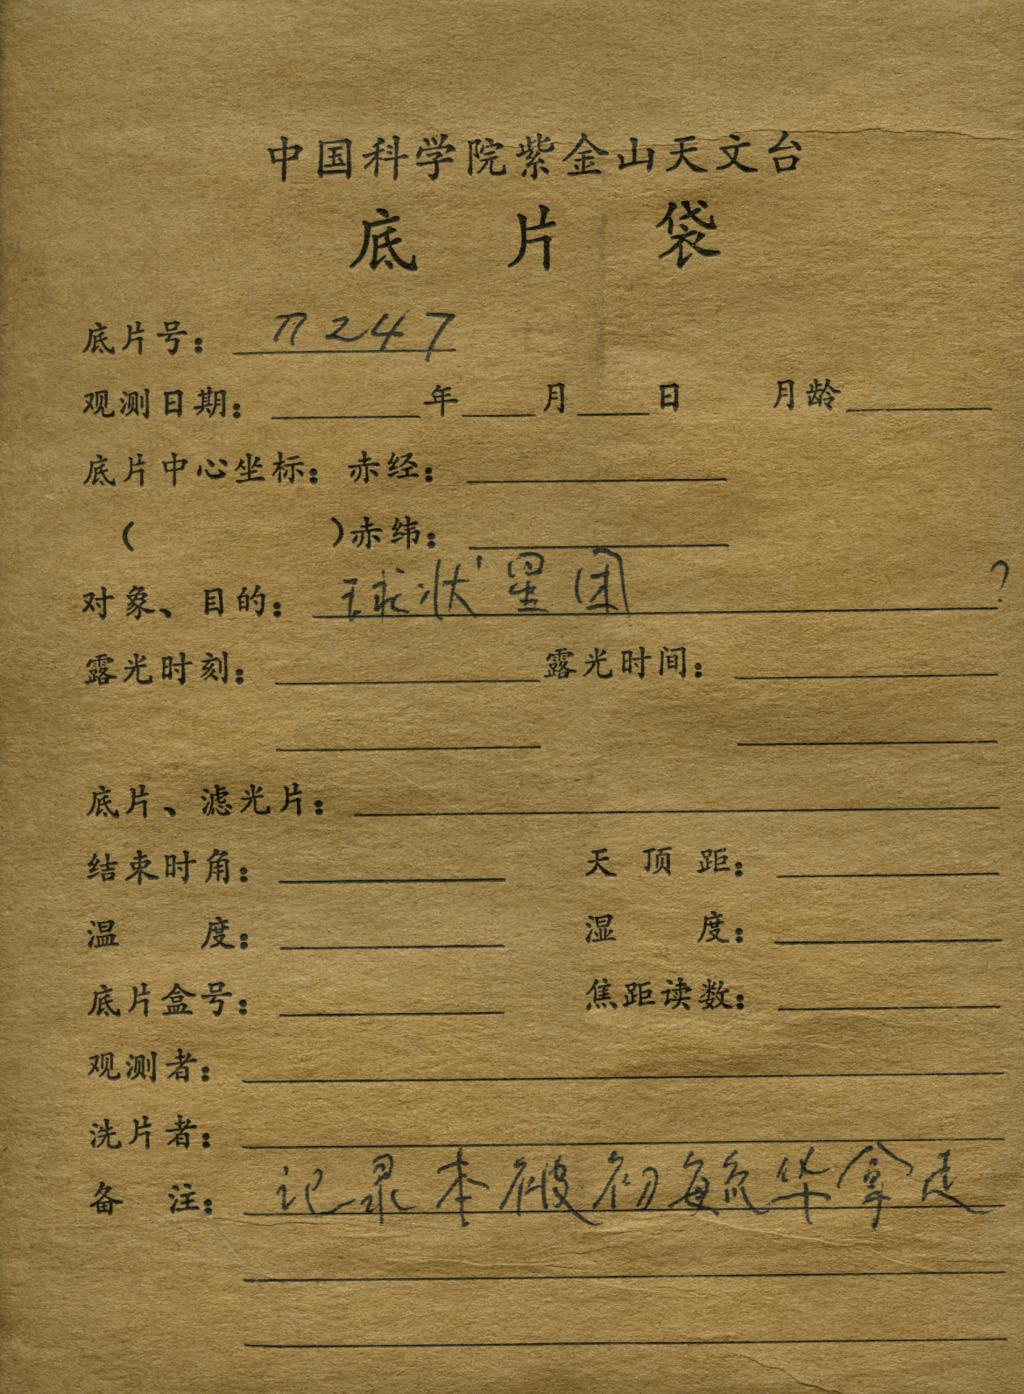 中国科学院紫金山天文台
底 片 袋
底片号： 247
观测日期：______年____月____日 月龄______
底片中心坐标：赤经：
( )赤纬：
对象、目的：球状星团 ?
露光时刻： 露光时间：
底片、滤光片：
结束时角： 天 顶 距：
温 度： 湿 度：
底片盒号： 焦距读数：
观测者：
洗片者：
备 注：记录本被初毓华拿走